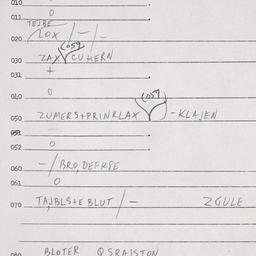 010
0
011
TEJBE
020 LOX /-/-
(059
030 ZAX CUHERN
031 +
040 0
(059
050 ZUMERS+PRINKLAX - KLAJEN
052 0
060 -/BRO,DEFKSE
061 0
070 TAJBLS+E BLUT /- ZGULE
080 BLOTER @SRAISTON